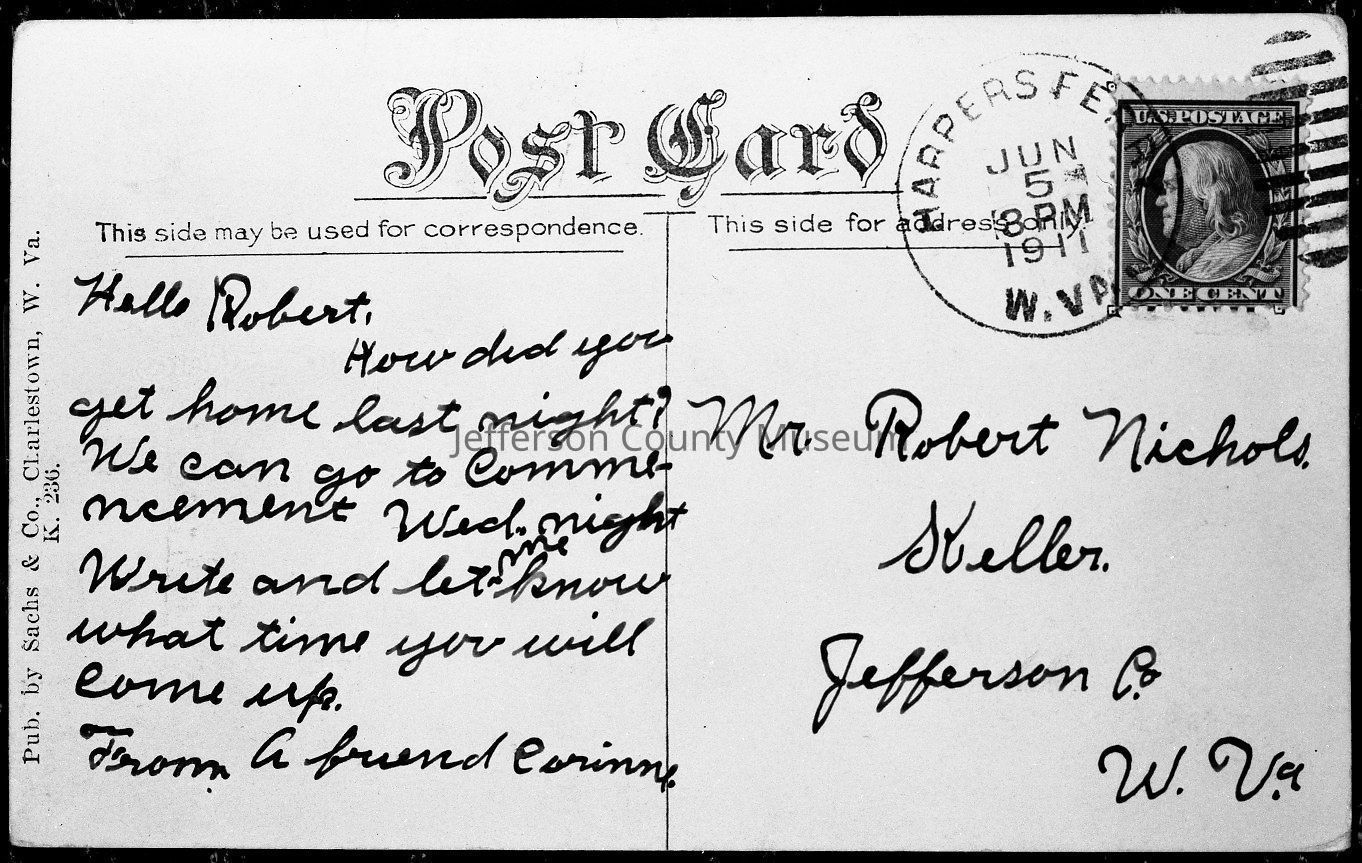 Post Card
This side may be used for correspondence.
This side for address only.
HARPERS FE
JUN
5
8 PM
1911
W. VA
U.S. POSTAGE
ONE CENT
Pub. by Sachs & Co., Charlestown, W. Va.
K. 236.
Hello Robert,
How did you
get home last night?
We can go to Comme-
ncement Wed. night
Write and let me know
what time you will
come up.
From A friend Corinne.
Mr. Robert Nichols.
Keller.
Jefferson Co
W. Va
Jefferson County Museum